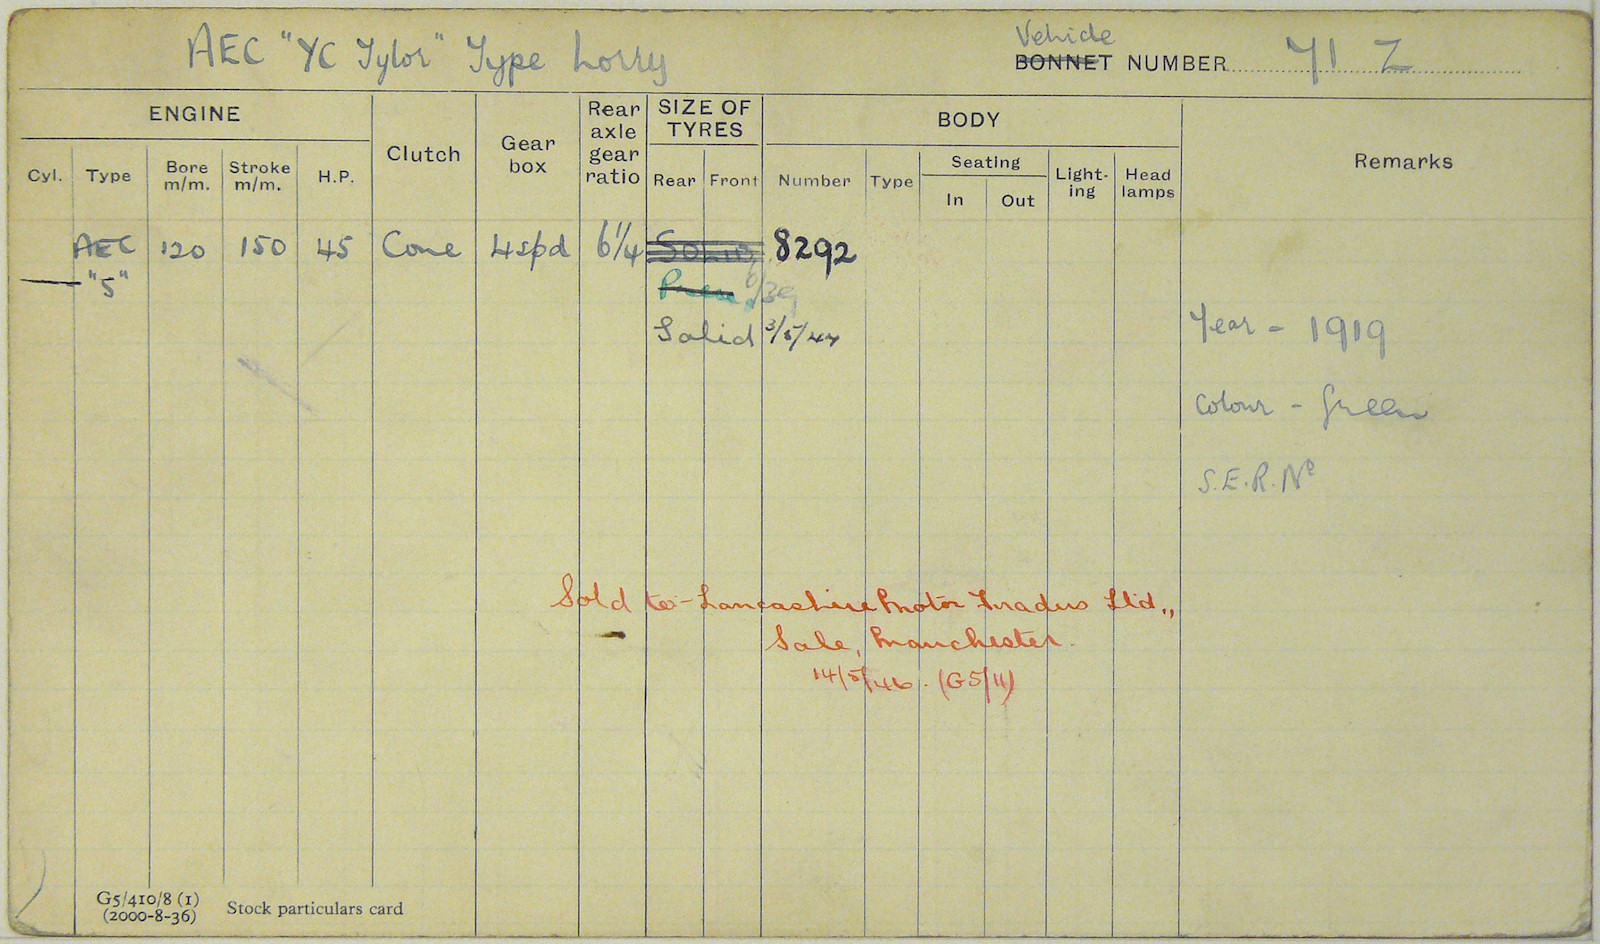 AEC "YC Tylor" Type Lorry
Vehicle
BONNET NUMBER 71 Z
ENGINE
Cyl.
Type
Bore
m/m.
Stroke
m/m.
H.P.
Clutch
Gear
box
Rear
axle
gear
ratio
SIZE OF
TYRES
Rear
Front
BODY
Number
Type
Seating
In
Out
Light-
ing
Head
lamps
Remarks
AEC 120 150 45 Cone 4spd 6 1/4 Solid 8292
"5"
/39
Solid 3/5/44
Year - 1919
Colour - Green
S.E.R. No
Sold to - Lancashire Motor Traders Ltd.,
Sale, Manchester.
14/5/46. (G5/11)
G5/410/8 (1)
(2000-8-36)
Stock particulars card